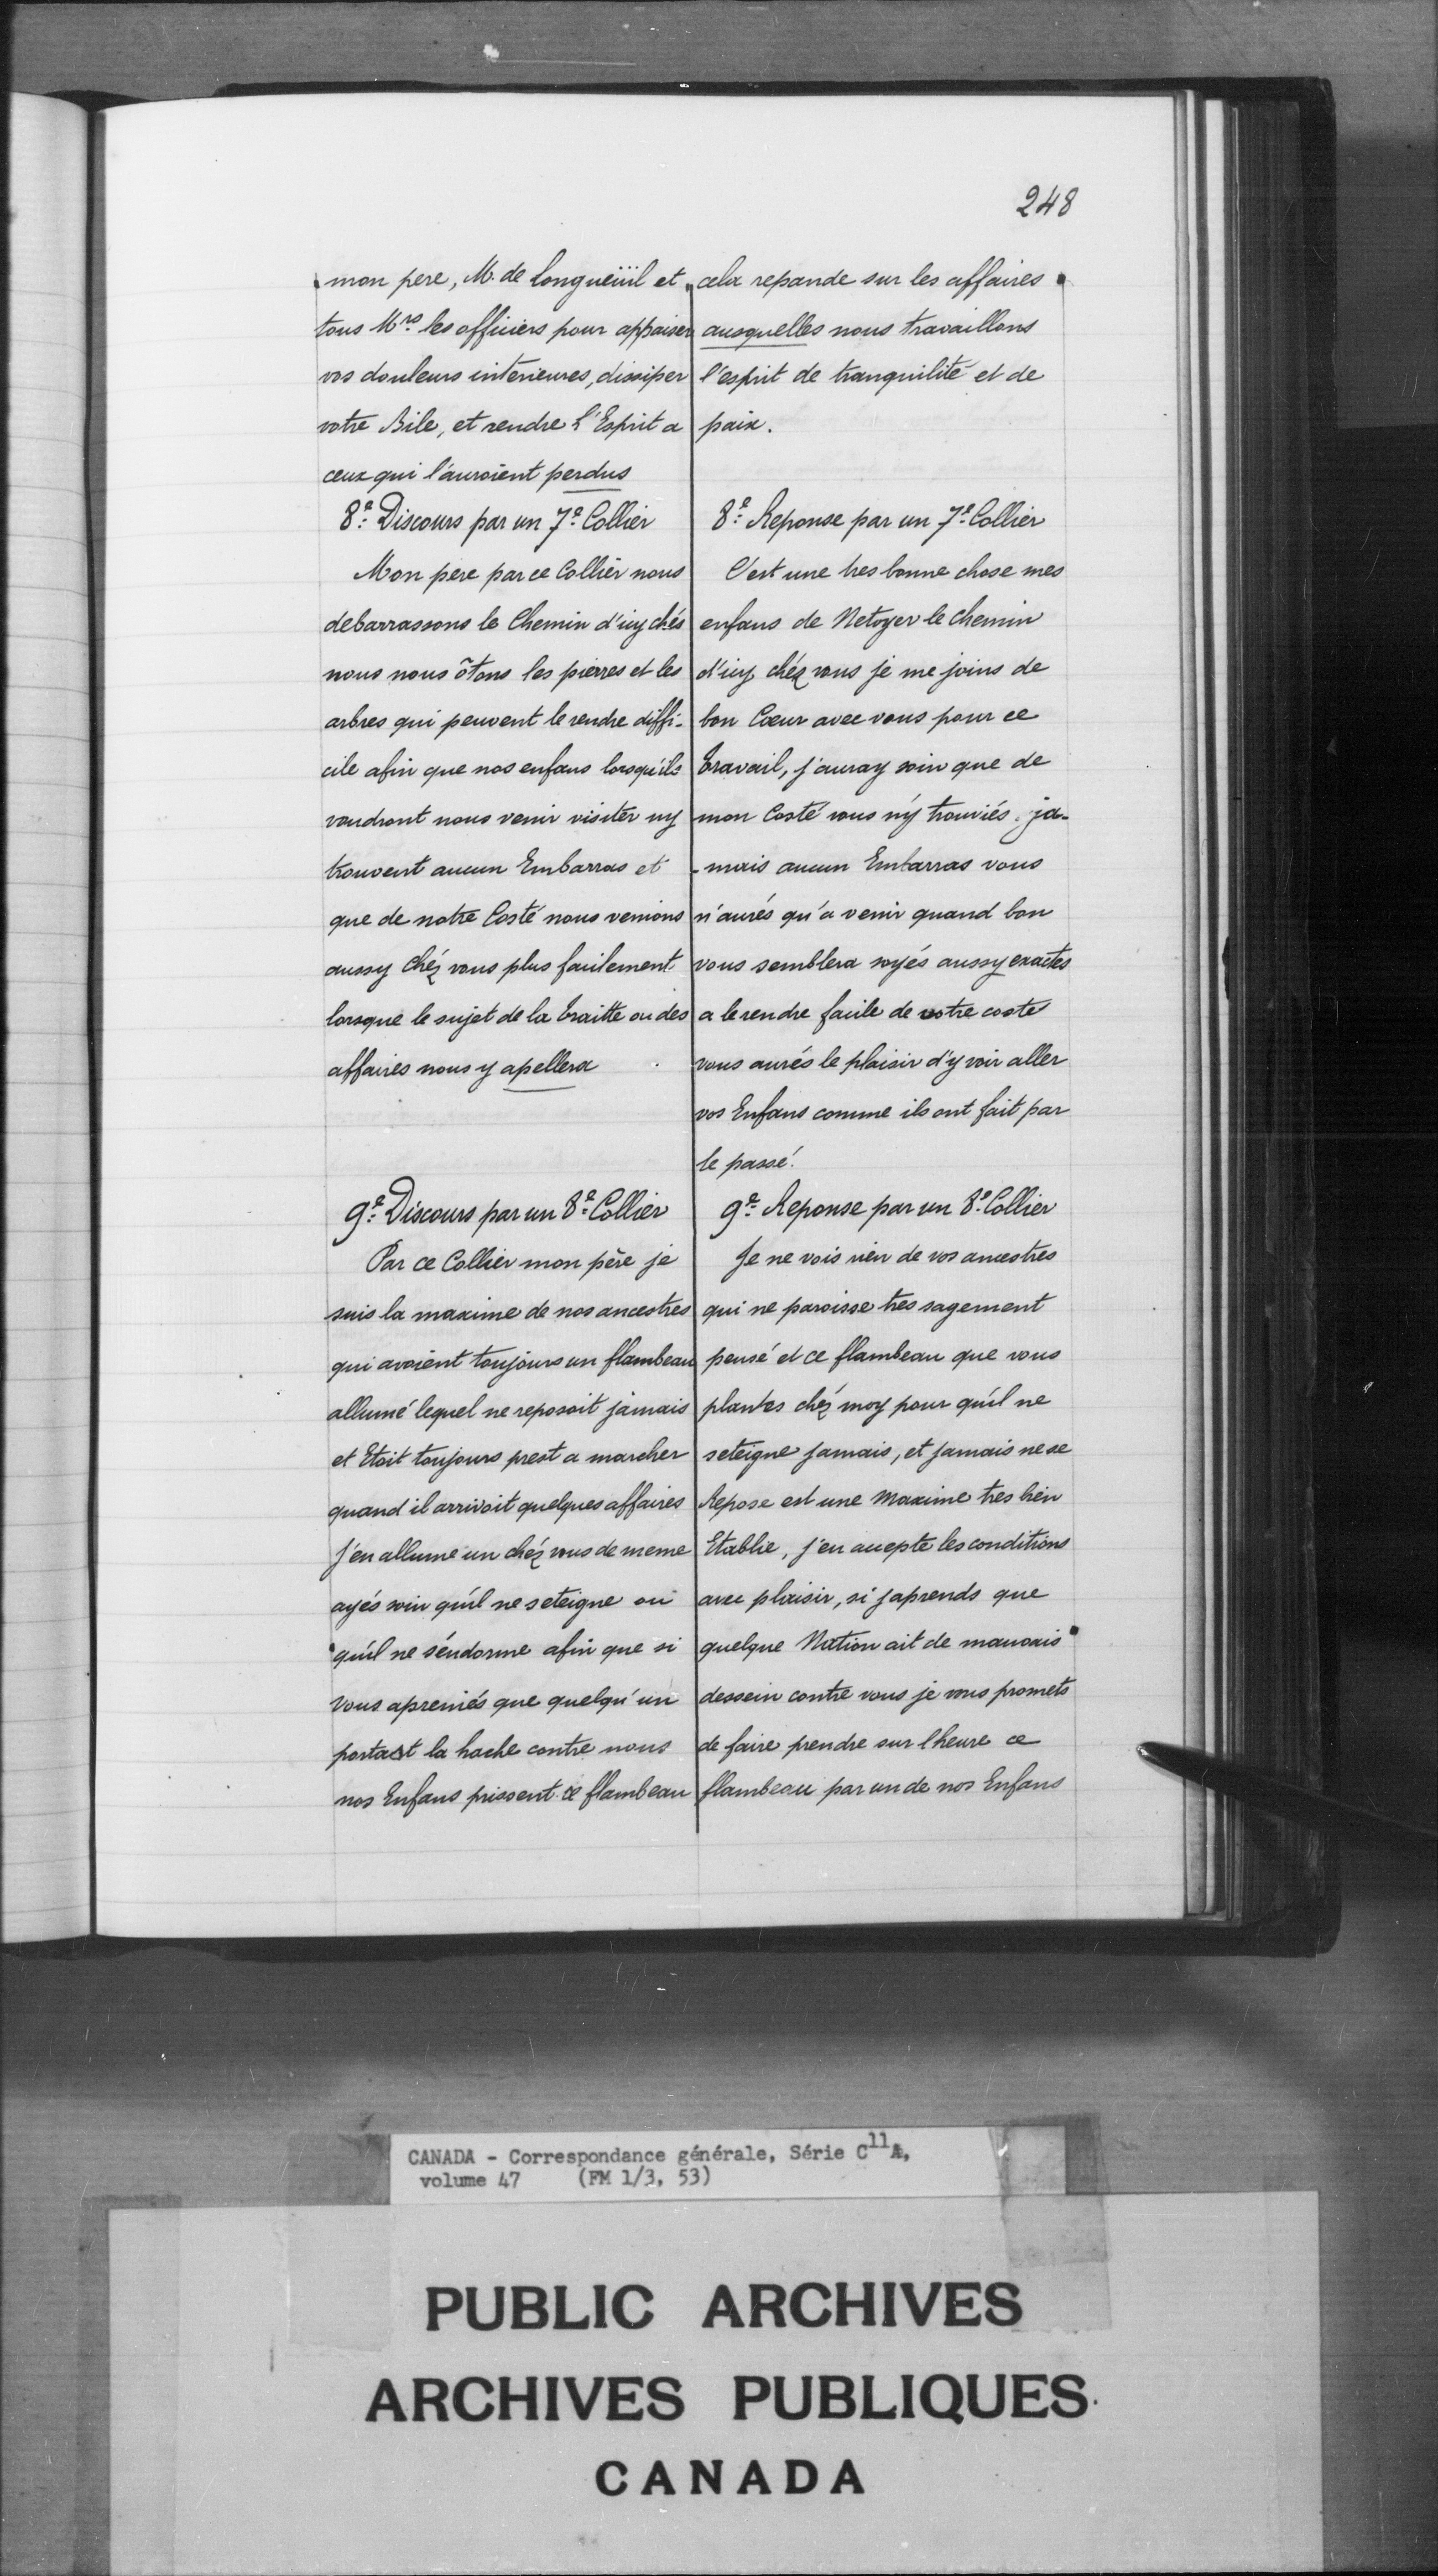 248
mon pere, M. de Longueüil et
tous Mrs les officiers pour appaiser
vos douleurs intérieures, dissiper
votre Bile, et rendre l'Esprit a
ceux qui l'auroient perdus
8e: Discours par un 7e: Collier
Mon pere par ce Collier nous
debarrassons le Chemin d'icy chés
nous nous ôtons les pierres et les
arbres qui peuvent le rendre diffi-
cile afin que nos enfans lorsqu'ils
voudront nous venir visiter ny
trouvent aucun Embarras et
que de notre Costé nous venions
aussy chéz vous plus facilement
lorsque le sujet de la traitte ou des
affaires nous y apellera
9e: Discours par un 8e: Collier
Par ce Collier mon père je
suis la maxime de nos ancestres
qui avoient toujours un flambeau
allumé lequel ne reposoit jamais
et Etoit toujours prest a marcher
quand il arrivoit quelques affaires
j'en allume un chéz vous de meme
ayés soin qu'il ne s'eteigne ou
qu'il ne s'endorme afin que si
vous apreniés que quelqu'un
portast la hache contre nous
nos Enfans prissent ce flambeau
cela repande sur les affaires
ausquelles nous travaillons
l'esprit de tranquilité et de
paix.
8e: Reponse par un 7e: Collier
C'est une tres bonne chose mes
enfans de Netoyer le chemin
d'icy chéz vous je me joins de
bon Cœur avec vous pour ce
travail, j'auray soin que de
mon Costé vous n'y trouviés ja-
-mais aucun Embarras vous
n'aurés qu'a venir quand bon
vous semblera soyés aussy exactes
a le rendre facile de votre costé
vous aurés le plaisir d'y voir aller
vos Enfans comme ils ont fait par
le passé.
9e: Reponse par un 8e: Collier
Je ne vois rien de vos ancestres
qui ne paroisse tres sagement
pensé et ce flambeau que vous
plantes chéz moy pour qu'il ne
seteigne jamais, et jamais ne se
Repose est une Maxime tres bien
Etablie, j'en accepte les conditions
avec plaisir, si japrends que
quelque Nation ait de mauvais
dessein contre vous je vous promets
de faire prendre sur lheure ce
flambeau par un de nos Enfans
CANADA - Correspondance générale, Série C11A,
volume 47 (FM 1/3, 53)
PUBLIC ARCHIVES
ARCHIVES PUBLIQUES
CANADA